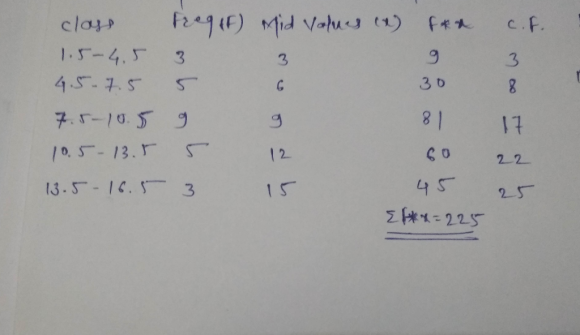 class Freq(F) Mid Values (x) F*x C.F.
1.5-4.5 3 3 9 3
4.5-7.5 5 6 30 8
7.5-10.5 9 9 81 17
10.5-13.5 5 12 60 22
13.5-16.5 3 15 45 25
Σf*x=225